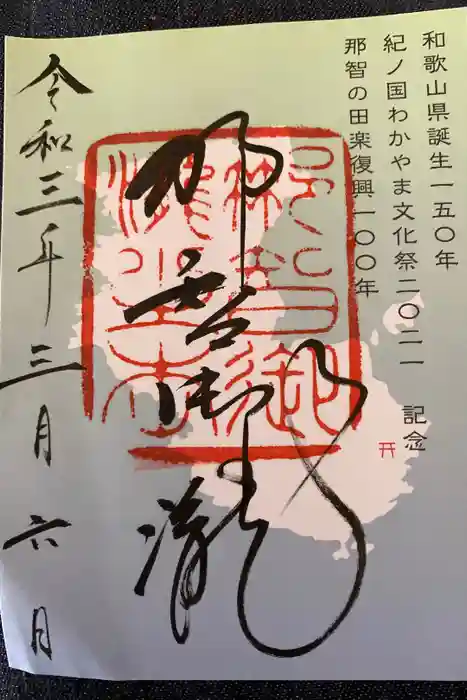 和歌山県誕生一五〇年
紀ノ国わかやま文化祭二〇二一 記念
那智の田楽復興一〇〇年
那智御瀧
令和三年三月六月